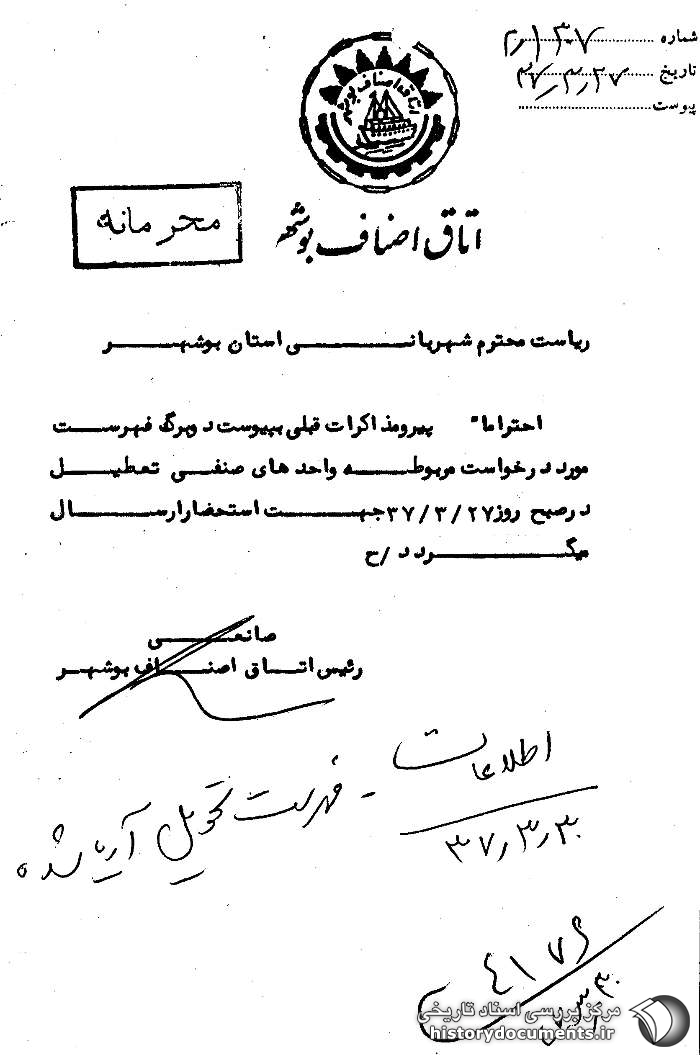 شماره ۲٫۱۳۰۷
تاریخ ۳۷٫۳٫۲۷
پیوست
اتاق اصناف بوشهر
اتاق اصناف بوشهر
محرمانه
ریاست محترم شهربانی استان بوشهر
احتراما" پیرومذاکرات قبلی بپیوست دوبرگ فهرست
مورد درخواست مربوطه واحدهای صنفی تعطیل
درصبح روز ۳۷/۳/۲۷ جهت استحضار ارسال
میگردد/ح
صانعی
رئیس اتاق اصناف بوشهر
اطلاعات - فهرست تحویل شده
۳۷٫۳٫۳۰
۴۱۷۶
مرکز بررسی اسناد تاریخی
historydocuments.ir